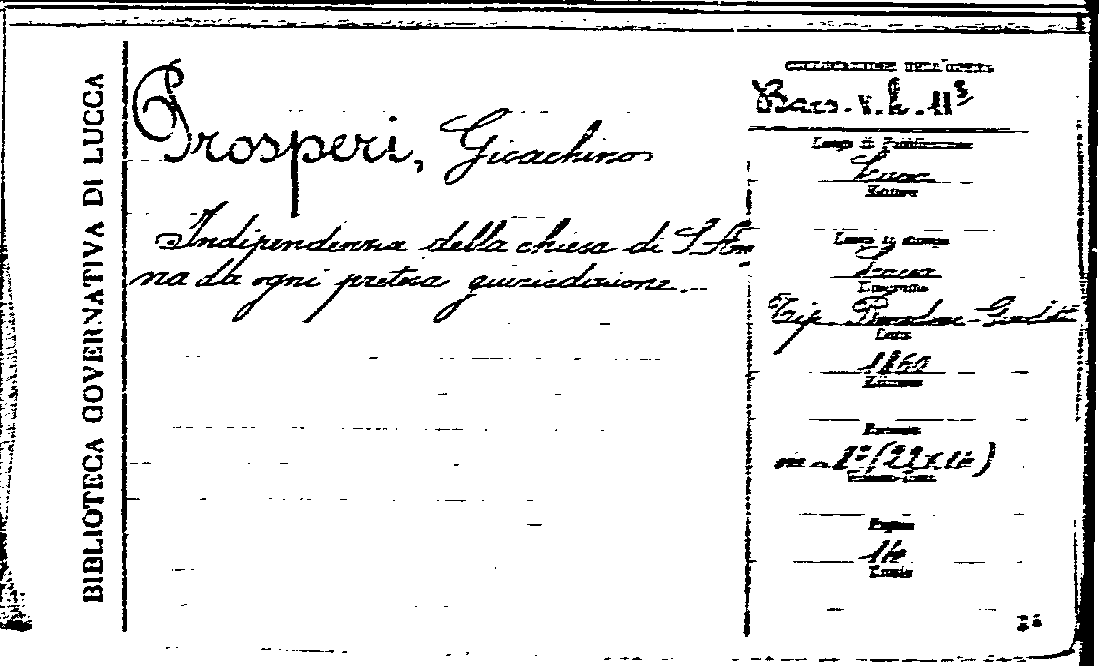 BIBLIOTECA GOVERNATIVA DI LUCCA
Prosperi, Gioachino
Indipendenza della chiesa di
na da ogni pretesa giurisdizione.
COLLOCAZIONE DELL'OPERA
Bacs. v. h. 11
Luogo di Pubblicazione
Lucca
Editore
Luogo di stampa
Lucca
Tipografia
Tip.
Data
1860
Edizione
Formato
(22x16)
Pagine
16